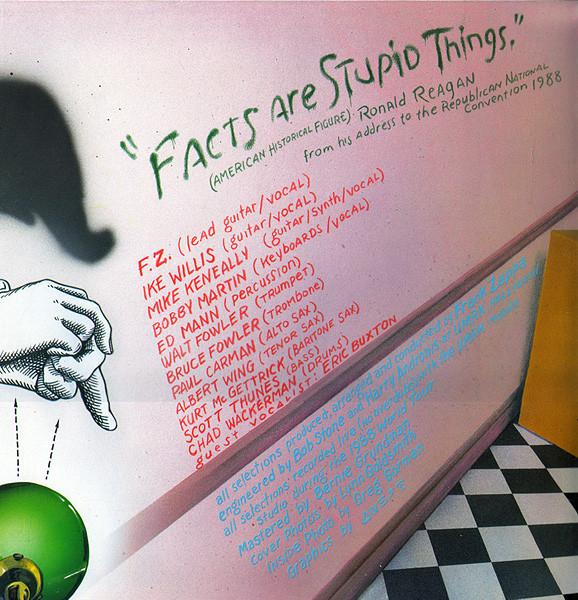 "FACTS ARE STUPID THINGS."
(AMERICAN HISTORICAL FIGURE) RONALD REAGAN
from his address to the Republican National
Convention 1988
F.Z. (lead guitar/vocal)
IKE WILLIS (guitar/vocal)
MIKE KENEALLY (guitar/synth/vocal)
BOBBY MARTIN (keyboards/vocal)
ED MANN (percussion)
WALT FOWLER (trumpet)
BRUCE FOWLER (trombone)
PAUL CARMAN (ALTO SAX)
ALBERT WING (TENOR SAX)
KURT McGETTRICK (BARITONE SAX)
SCOTT THUNES (BASS)
CHAD WACKERMAN (DRUMS)
guest vocalist: ERIC BUXTON
all selections produced, arranged and conducted by Frank Zappa
engineered by Bob Stone and Harry Andronis at UMRK
all selections recorded live (no overdubs) with the UMRK mobile
studio during the 1988 World Tour
Mastered by Bernie Grundman
Cover Photos by Lynn Goldsmith
Inside Photo by Greg Gorman
Graphics by